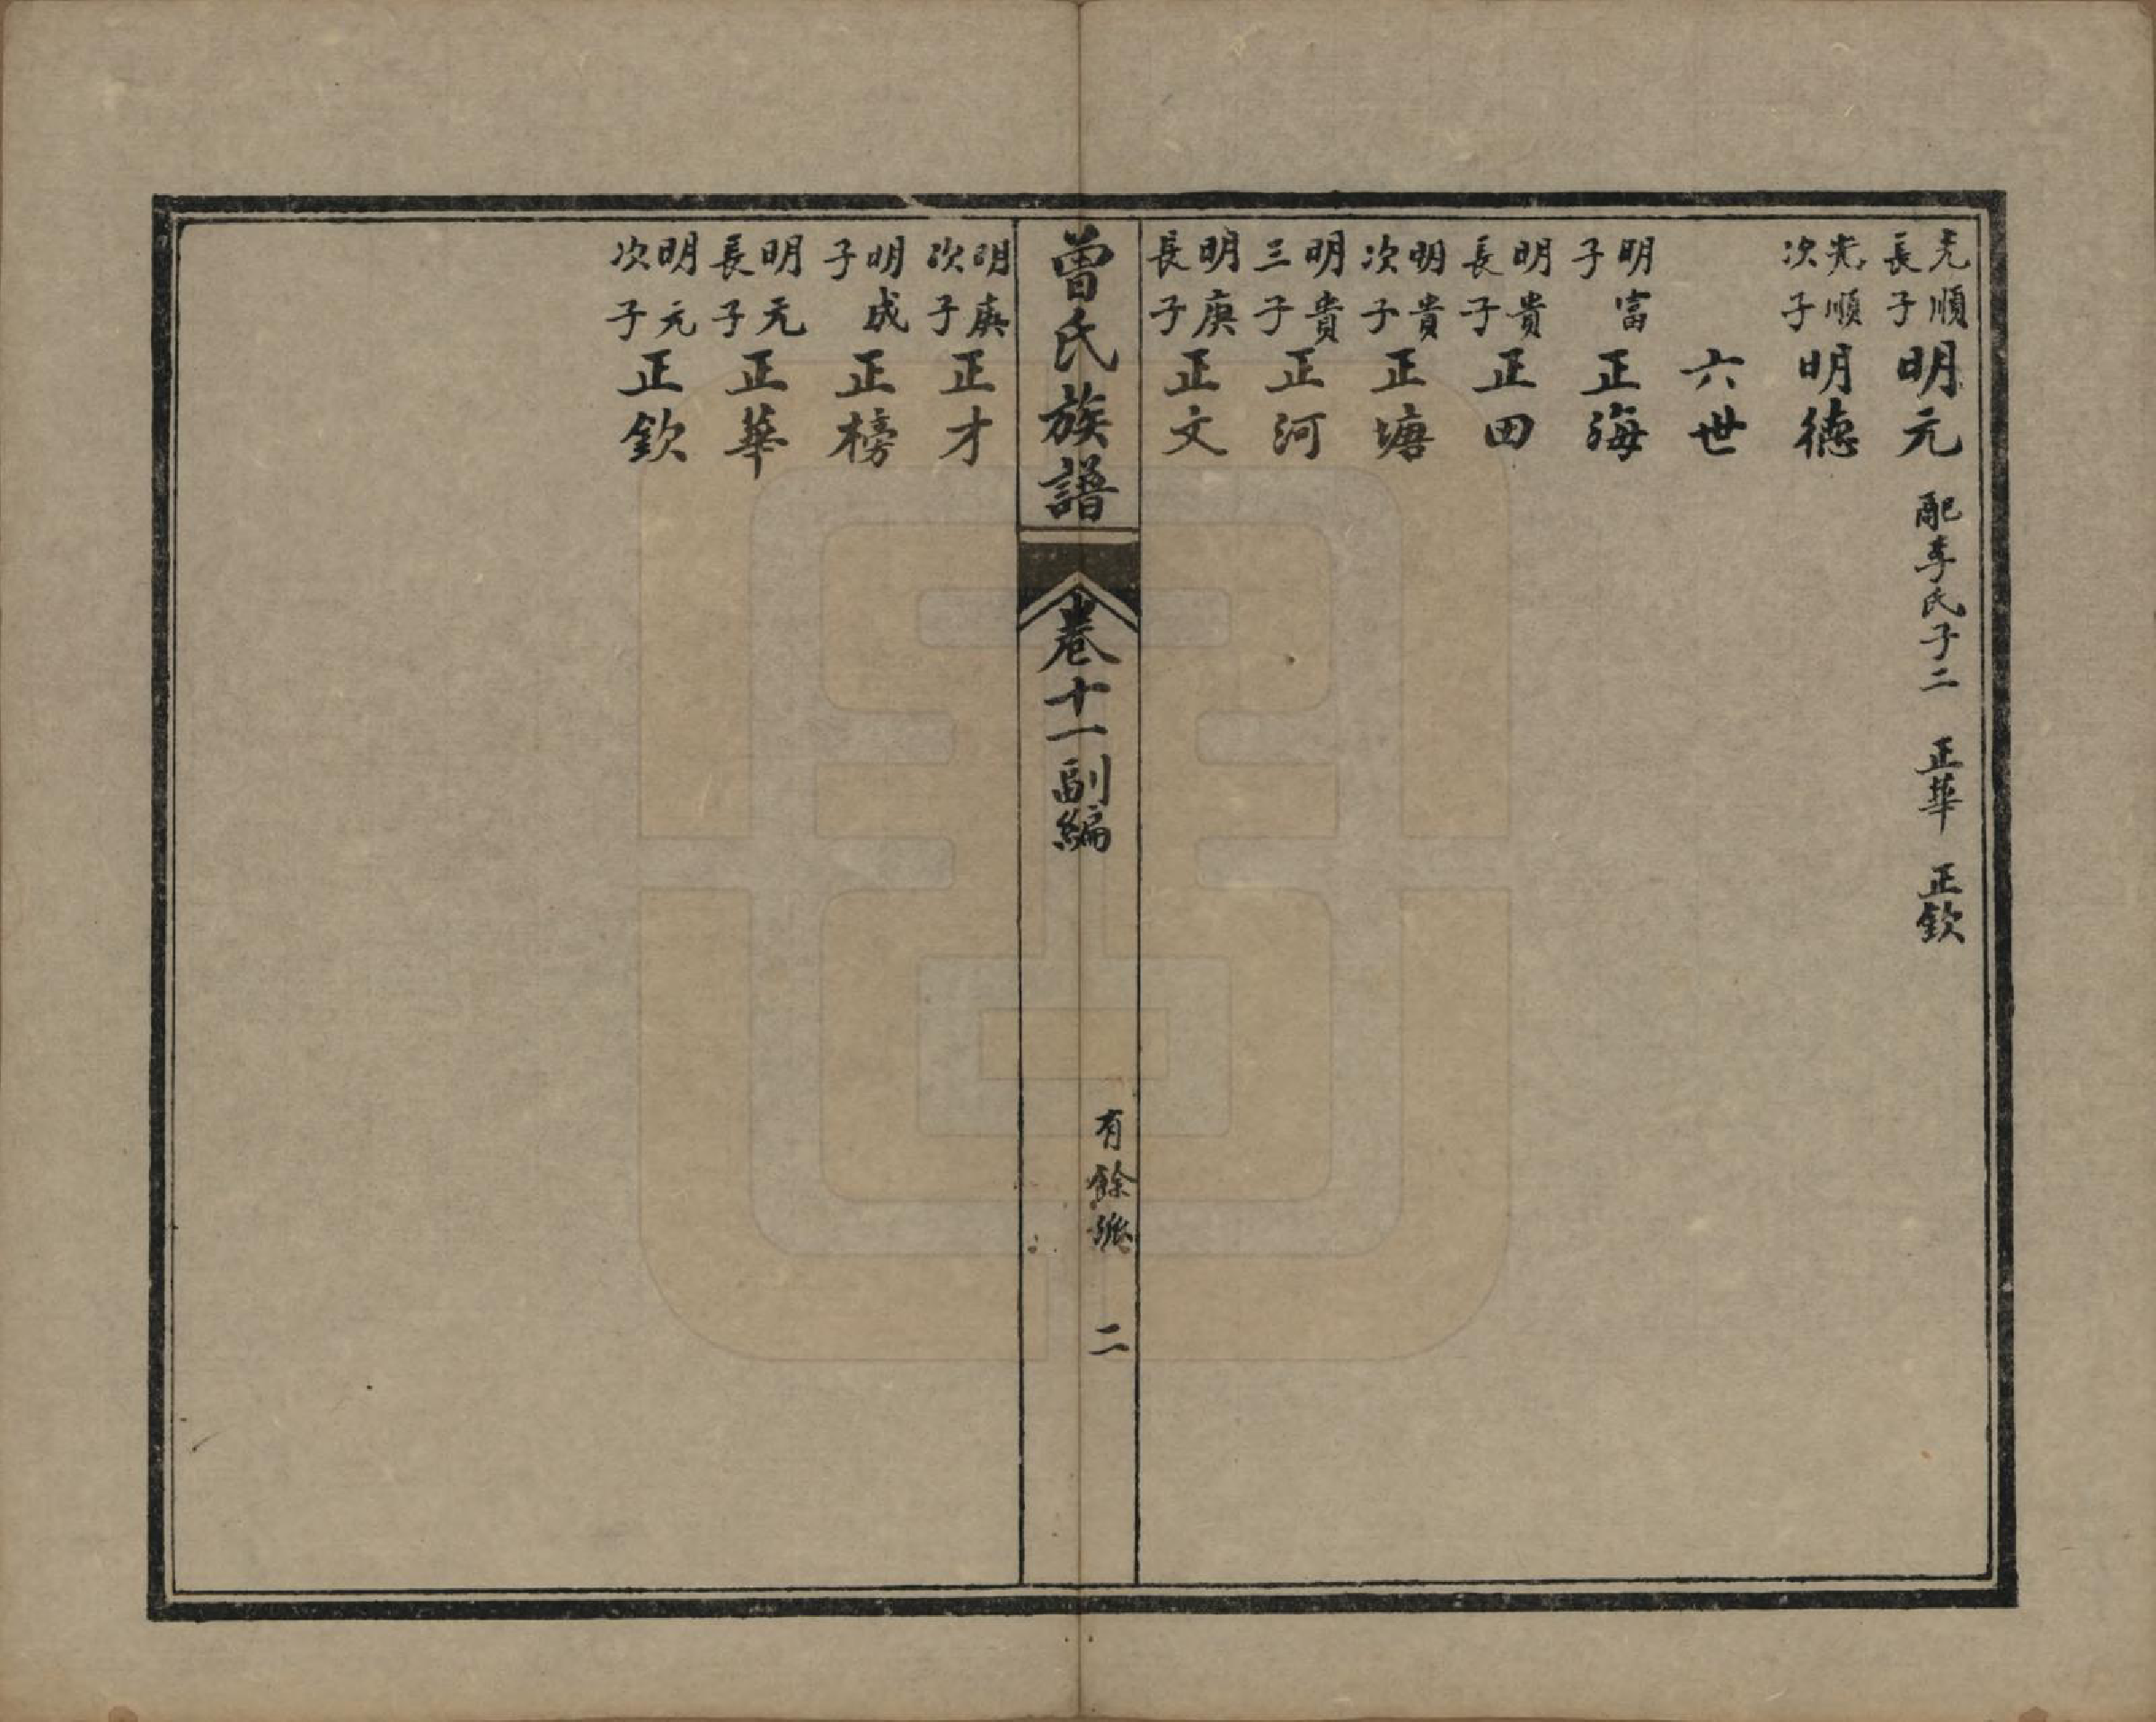 光順長子明元 配李氏子二 正華 正欽
光順次子明德
六世
明富子正海
明貴長子正田
明貴次子正塘
明貴三子正河
明庚長子正文
曾氏族譜 卷十一副編 有餘 二
明庚次子正才
明成子正榜
明元長子正華
明元次子正欽